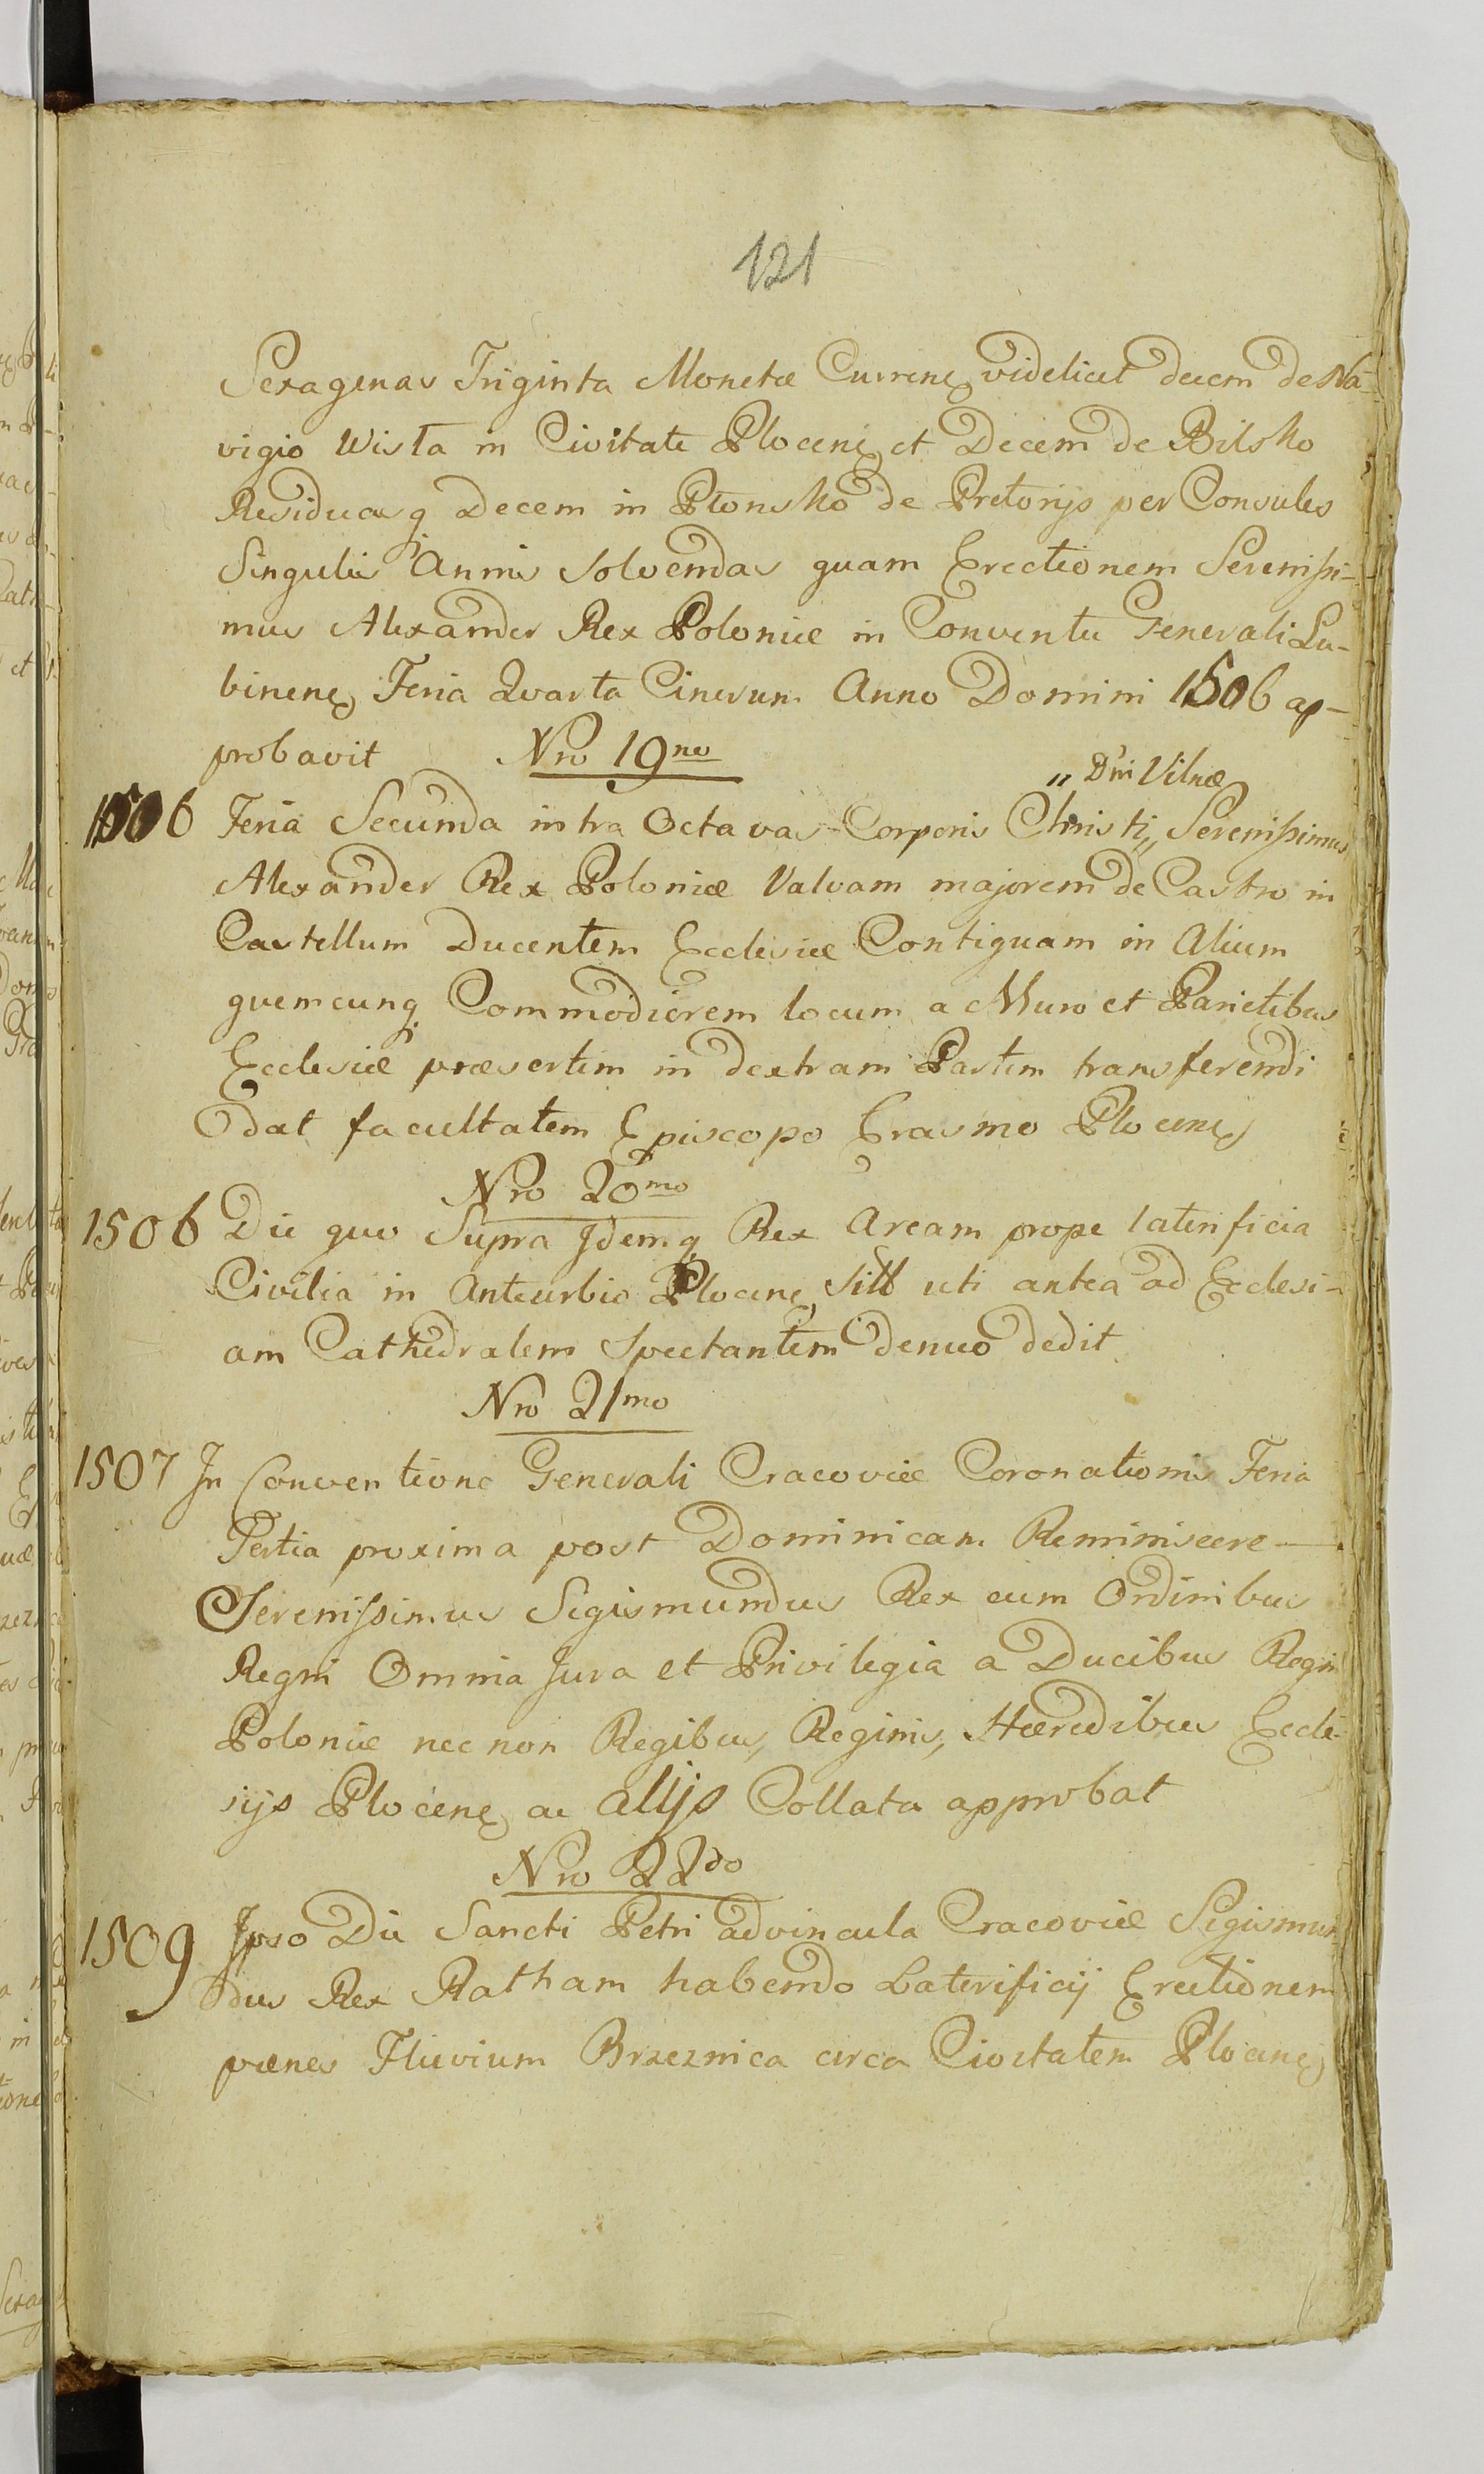 121
Sexagenas Triginta Monetæ Currenę videlicet decem de Na-
vigio Wisła in Civitate Plocenę et Decem de Bilsko
Residuasq Decem in Płonsko de Pretorijs per Consules
Singulis Annis Solvendas quam Erectionem Serenissi-
mus Alexander Rex Poloniæ in Conventu Generali Lu-
binenę Feria Quarta Cinerum Anno Domini 1506 ap-
probavit Nro 19no
„ Dni Vilnæ
1506 Feria Secunda intra Octavas Corporis Christi „ Serenissimus
Alexander Rex Poloniæ Valvam majorem de Castro in
Castellum Ducentem Ecclesiæ Contiguam in Alium
quemcunq Commodiorem locum a Muro et Parietibus
Ecclesiæ præsertim in dextram Partem transferendi
dat facultatem Episcopo Erasmo Plocenę
Nro 20mo
1506 Die quo Supra Idemq Rex Aream prope laterificia
Civilia in Anteurbio Plocenę uti antea ad Ecclesi-
am Cathedralem Spectantem denuo dedit
Nro 21mo
1507 In Conventione Generali Cracoviæ Coronationis Feria
Tertia proxima post Dominicam Reminiscere
Serenissimus Sigismundus Rex cum Ordinibus
Regni Omnia Jura et Privilegia a Ducibus Regni
Poloniæ nec non Regibus, Reginis, Hæredibus Eccle-
sijs Plocenę ac alijs Collata approbat
Nro 22do
1509 Ipso Die Sancti Petri advincula Cracoviæ Sigismun-
dus Rex Ratham habendo Laterificij Erectionem
pænes Fluvium Brzeznica circa Civitatem Plocenę